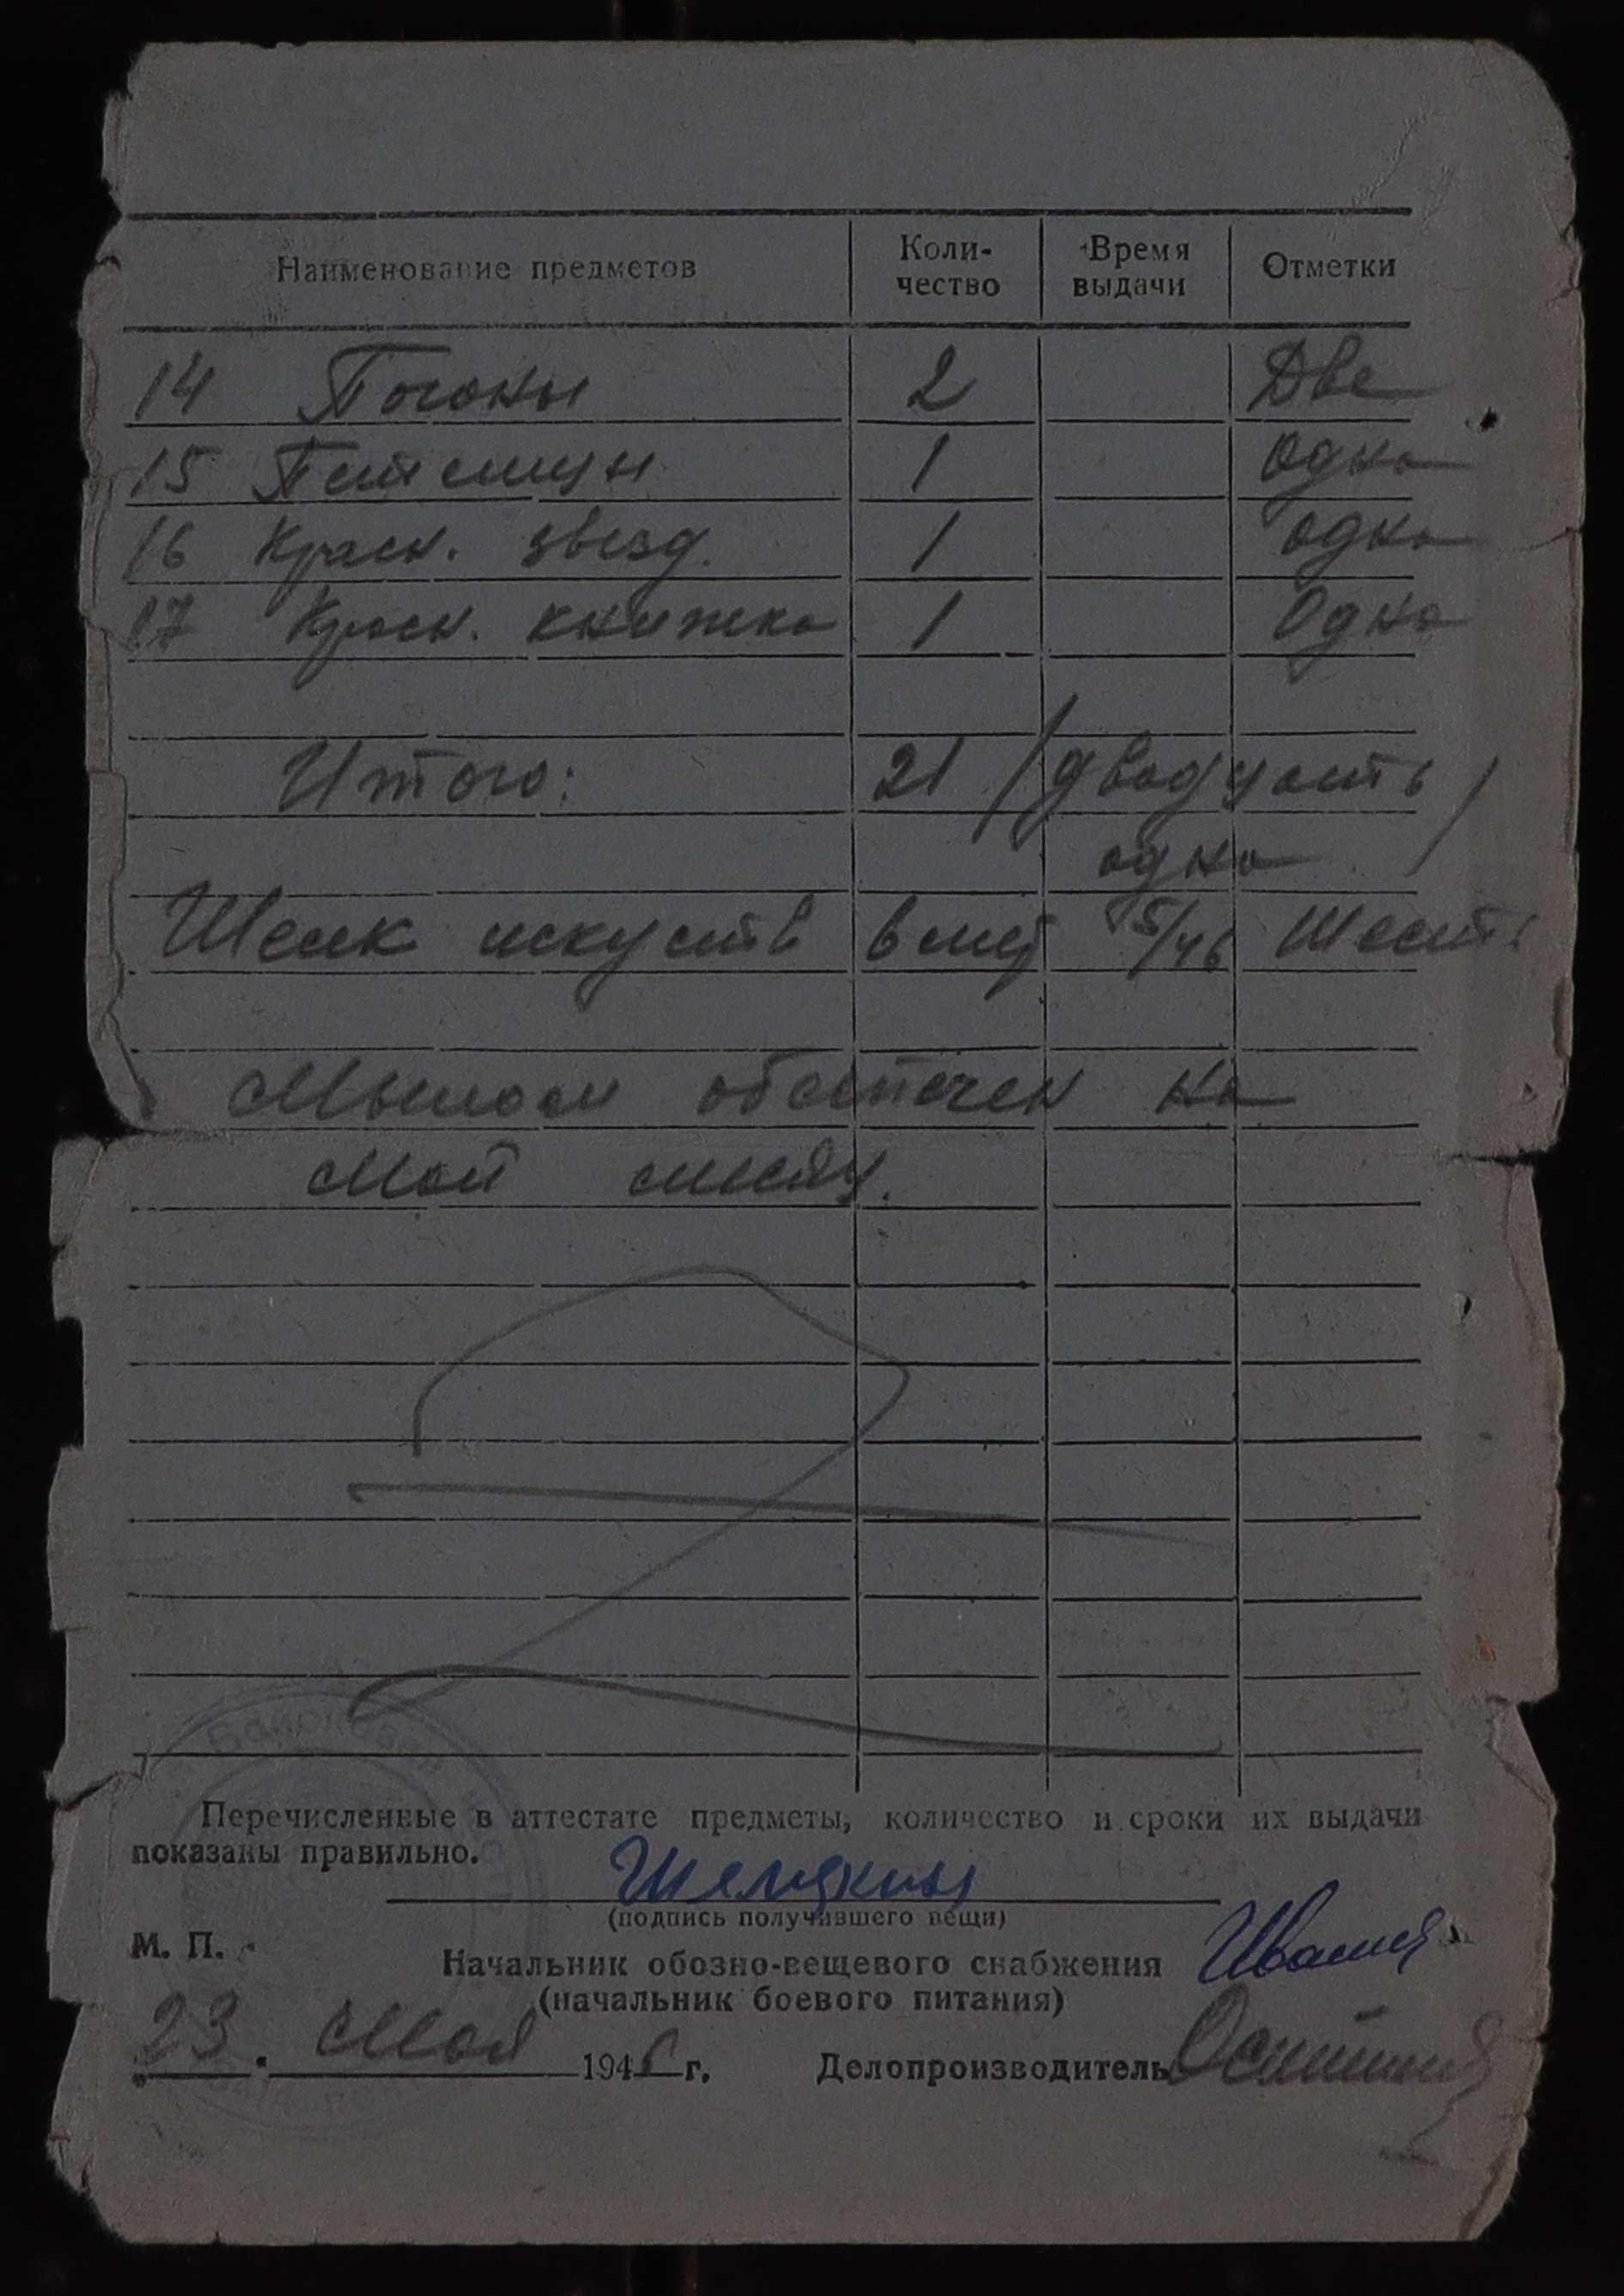 Наименование предметов Коли- чество Время выдачи Отметки
14 Погоны 2 Две
15 Петлицы 1 Одна
16 Красн. звезд. 1 одна
17 Красн. книжка 1 Одна
Итого: 21 /двадцать
одна /
Шелк искуств 6 мет 5/46 Шесть
Мылом обеспечен на
Май месяц.
Войсковая
Перечисленные в аттестате предметы, количество и сроки их выдачи
показаны правильно.
(подпись получившего вещи)
М. П.
Начальник обозно-вещевого снабжения
(начальник боевого питания)
23. Мая 1946 г. Делопроизводитель